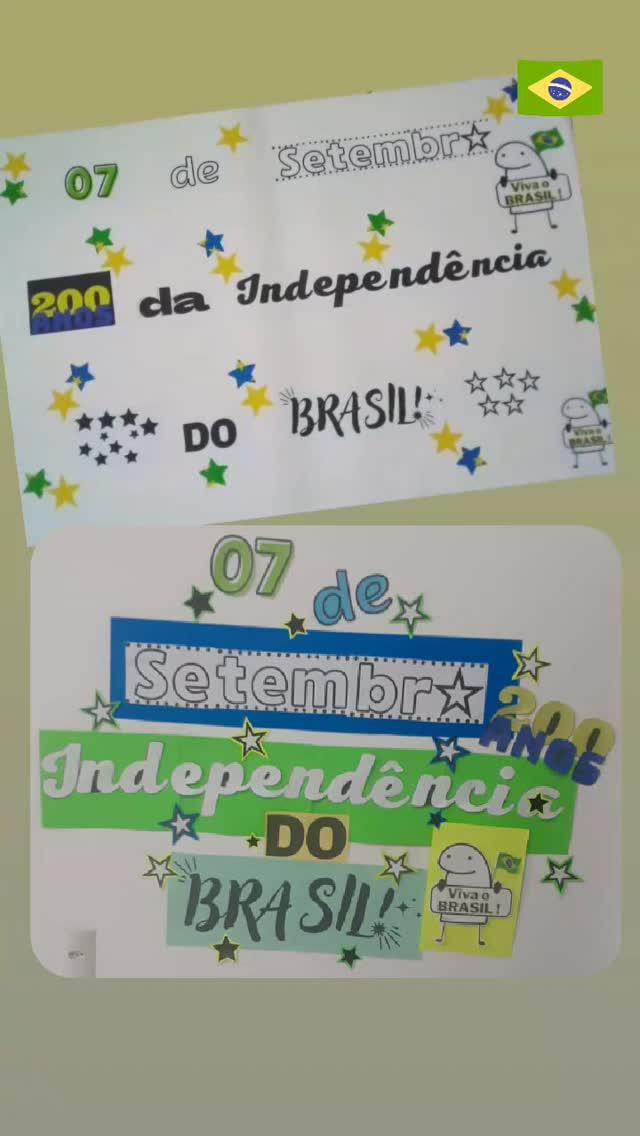 07 de Setembr☆
Viva o
BRASIL!
200
ANOS
da Independência
DO BRASIL!
Viva o
BRASIL!
07 de
Setembr☆
200
ANOS
Independência
DO
BRASIL!
Viva o
BRASIL!